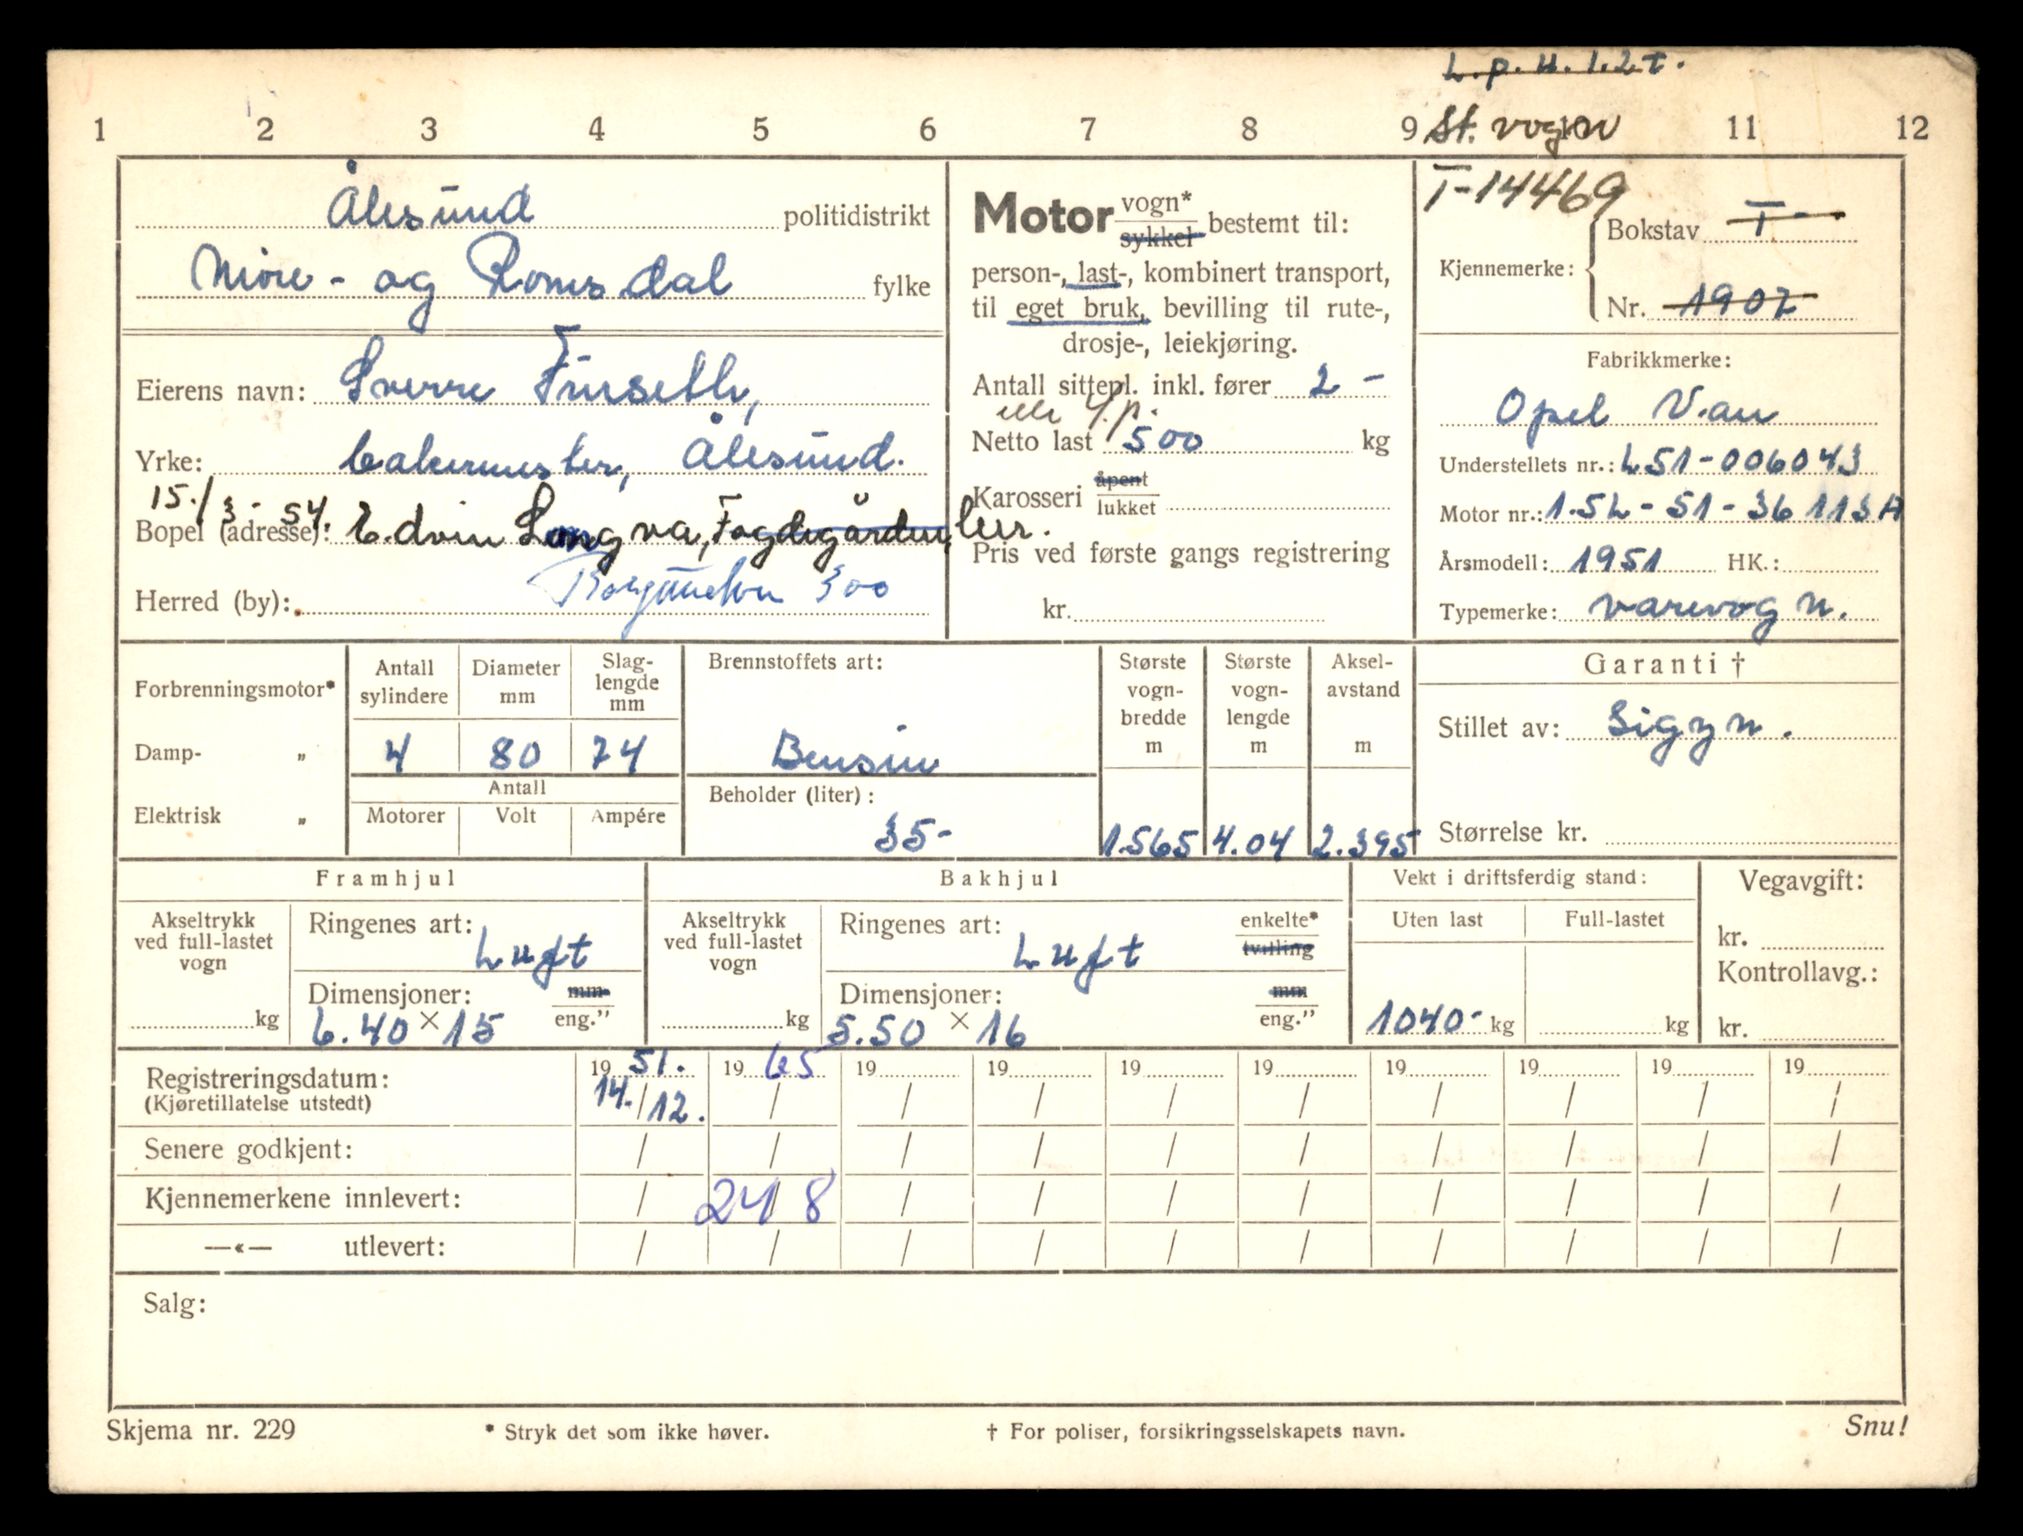 L.p.u. 1.2 t.
1 2 3 4 5 6 7 8 9 St. vogn 11 12
T-14469
Ålesund politidistrikt
Møre- og Romsdal fylke
Eierens navn: Sverre Furseth,
Yrke: bakermester, Ålesund.
15./3-54.
Bopel (adresse): Edvin Longva, Fogdegården, her.
Herred (by): Borgundvn 300
Motor vogn* sykkel bestemt til:
person-, last-, kombinert transport,
til eget bruk, bevilling til rute-,
drosje-, leiekjøring.
Antall sittepl. inkl. fører 2 -
eller 4 p.
Netto last 500 kg
Karosseri åpent lukket
Pris ved første gangs registrering
kr.
Kjennemerke: Bokstav T-
Nr. 1902
Fabrikkmerke:
Opel Van
Understellets nr.: L51-006043
Motor nr.: 1.5L-51-36113A
Årsmodell: 1951 HK.:
Typemerke: varevogn.
Forbrenningsmotor*
Damp- „
Elektrisk „
Antall sylindere Diameter mm Slag-lengde mm
4 80 74
Antall
Motorer Volt Ampére
Brennstoffets art:
Bensin
Beholder (liter):
35-
Største vogn-bredde m Største vogn-lengde m Aksel-avstand m
1.565 4.04 2.395
Garanti †
Stillet av: Sigyn.
Størrelse kr.
Framhjul
Akseltrykk ved full-lastet vogn
kg
Ringenes art: Luft
Dimensjoner: mm eng.”
6.40 × 15
Bakhjul
Akseltrykk ved full-lastet vogn
kg
Ringenes art: Luft enkelte* tvilling
Dimensjoner: mm eng.”
5.50 × 16
Vekt i driftsferdig stand:
Uten last Full-lastet
1040- kg kg
Vegavgift:
kr.
Kontrollavg.:
kr.
Registreringsdatum: 1951. 1965 19 19 19 19 19 19 19 19
(Kjøretillatelse utstedt) 14./12. / / / / / / / / /
Senere godkjent: / / / / / / / / / /
Kjennemerkene innlevert: / 24/8 / / / / / / / /
—«— utlevert: / / / / / / / / / /
Salg:
Skjema nr. 229 * Stryk det som ikke høver. † For poliser, forsikringsselskapets navn. Snu!